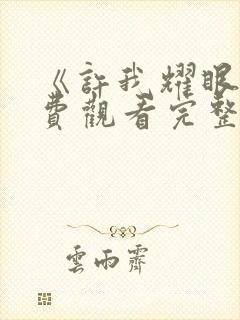 《許我耀眼
費觀看完整
雲雨霽